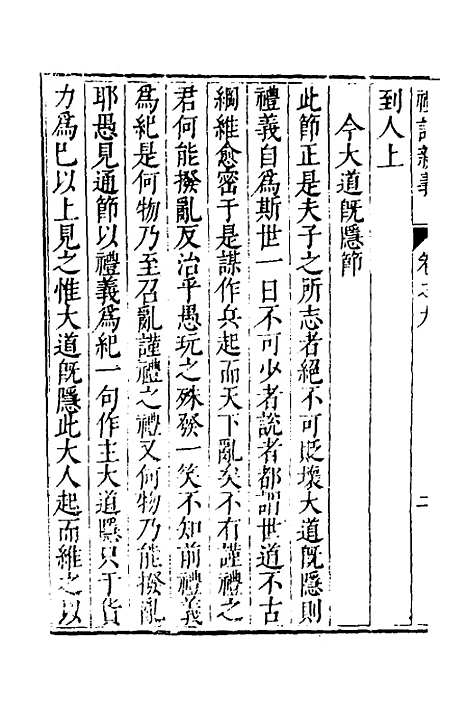 禮記新義 卷之九 二
到人上
今大道旣隱節
此節正是夫子之所志者絕不可貶壞大道旣隱則
禮義自爲斯世一日不可少者說者都謂世道不古
綱維愈密于是謀作兵起而天下亂矣不有謹禮之
君何能撥亂反治乎愚玩之殊發一笑不知前禮義
爲紀是何物乃至召亂謹禮之禮又何物乃能撥亂
耶愚見通節以禮義爲紀一句作主大道隱只于貨
力爲已以上見之惟大道旣隱此大人起而維之以